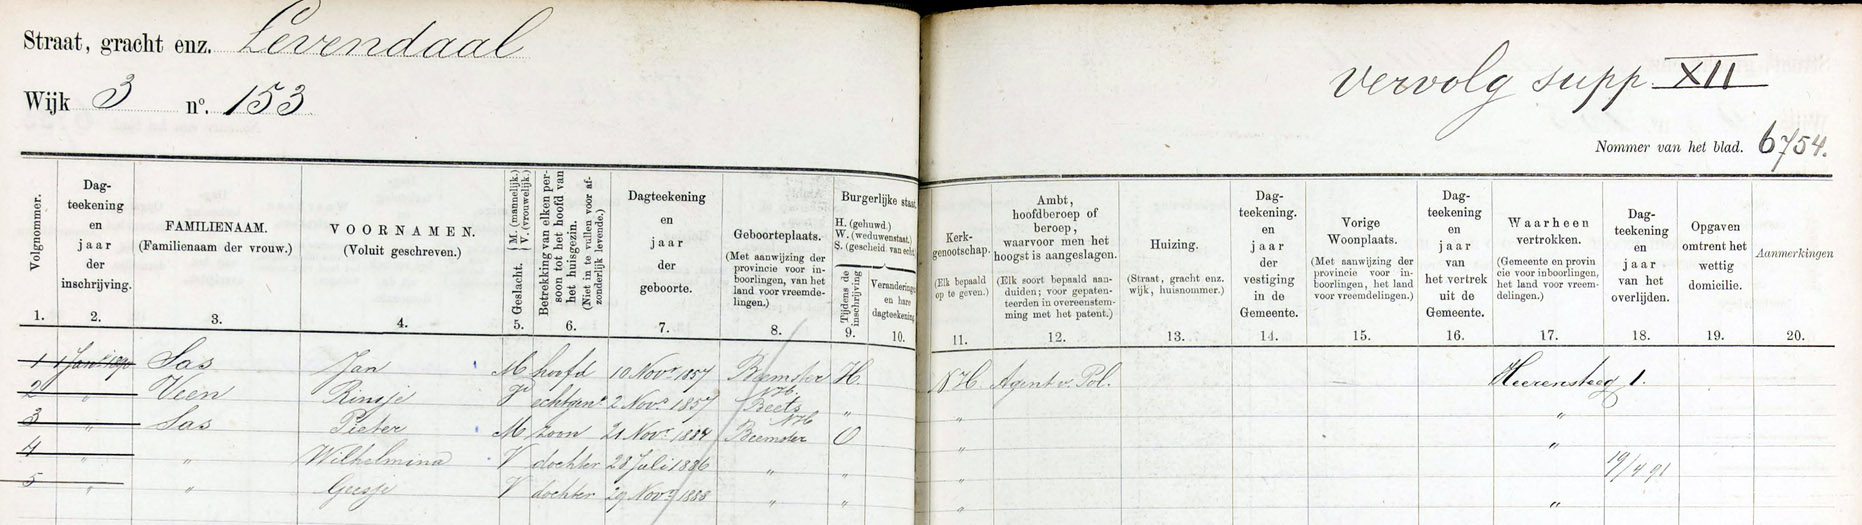 Straat, gracht enz. Levendaal
Wijk 3 no. 153
Vervolg supp XII
Nommer van het blad. 6754.
Volgnommer. 1.
Dag-
teekening
en
jaar
der
inschrijving.
2.
FAMILIENAAM.
(Familienaam der vrouw.)
3.
VOORNAMEN.
(Voluit geschreven.)
4.
Geslacht. { M. (mannelijk.) V. (vrouwelijk.)
5.
Betrekking van elken per-
soon tot het hoofd van
het huisgezin.
(Niet in te vullen voor af-
zonderlijk levende.)
6.
Dagteekening
en
jaar
der
geboorte.
7.
Geboorteplaats.
(Met aanwijzing der
provincie voor in-
boorlingen, van het
land voor vreemde-
lingen.)
8.
Burgerlijke staat.
H. (gehuwd.)
W. (weduwenstaat.)
S. (gescheid van echt)
Tijdens de
inschrijving
9.
Veranderingen
en hare
dagteekening
10.
Kerk-
genootschap.
(Elk bepaald
op te geven.)
11.
Ambt,
hoofdberoep of
beroep,
waarvoor men het
hoogst is aangeslagen.
(Elk soort bepaald aan-
duiden; voor gepaten-
teerden in overeenstem-
ming met het patent.)
12.
Huizing.
(Straat, gracht enz.
wijk, huisnommer.)
13.
Dag-
teekening.
en
jaar
der
vestiging
in de
Gemeente.
14.
Vorige
Woonplaats.
(Met aanwijzing der
provincie voor in-
boorlingen, het land
voor vreemdelingen.)
15.
Dag-
teekening
en
jaar
van
het vertrek
uit de
Gemeente.
16.
Waarheen
vertrokken.
(Gemeente en provin
cie voor inboorlingen,
het land voor vreem-
delingen.)
17.
Dag-
teekening
en
jaar
van het
overlijden.
18.
Opgaven
omtrent het
wettig
domicilie.
19.
Aanmerkingen
20.
1 1 Jan. 1890 Sas Jan M hoofd 10 Novr 1857 Beemster N.H. H. N.H. Agent v. Pol. Heerensteeg 1.
2 " Veen Rinsje echtgent 2 Novr 1857 Beets N.H. " " "
3 " Sas Pieter M zoon 21 Novr 1884 Beemster O " "
4 " " Wilhelmina V dochter 28 Juli 1886 " " " 19/4 91
5 " " Geesje V dochter 29 Novr 1888 " " " "